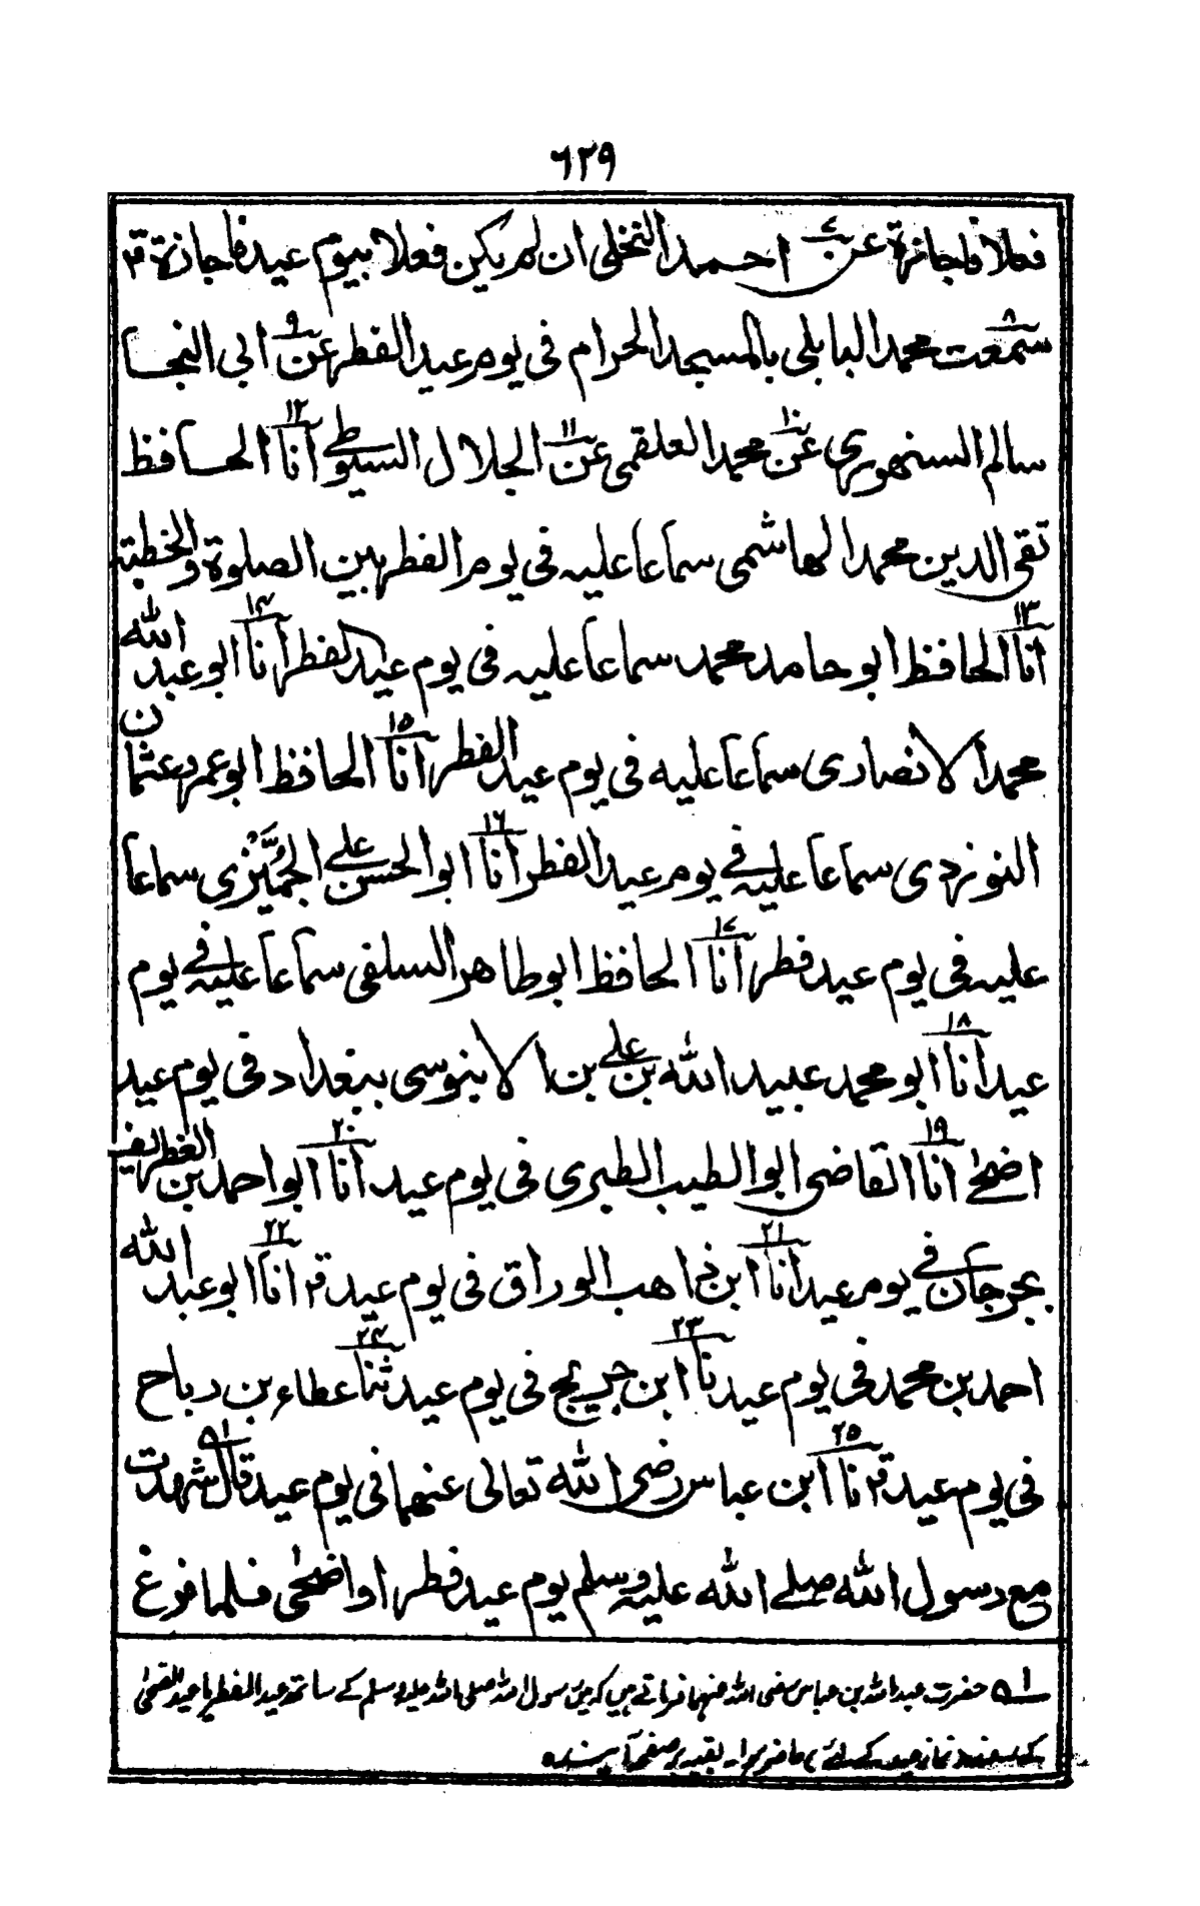 ٦٢٩
فعلا فاجازة عن٧ احمد النخلی ان لم یکن فعلا بیوم عید فاجازة قم
سمعت٨ محمد البابلی بالمسجد الحرام فی یوم عید الفطر عن٩ ابی النجا
سالم السنهوری عن١٠ محمد العلقمی عن١١ الجلال السیوطی انا١٢ الحافظ
تقی الدین محمد الهاشمی سماعا علیه فی یوم الفطر بین الصلوة والخطبة
انا١٣ الحافظ ابو حامد محمد سماعا علیه فی یوم عید الفطر انا١٤ ابو عبد الله
محمد الانصاری سماعا علیه فی یوم عید الفطر انا١٥ الحافظ ابو عمر وعثمان
النوزدی سماعا علیه فی یوم عید الفطر انا١٦ ابو الحسن علی الجُمَّیْزی سماعا
علیه فی یوم عید فطر انا١٧ الحافظ ابو طاهر السلفی سماعا علیه فی یوم
عید انا١٨ ابو محمد عبید الله بن علی بن الابنوسی ببغداد فی یوم عید
اضحی انا١٩ القاضی ابو الطیب الطبری فی یوم عید انا٢٠ ابو احمد بن الغطریف
بجرجان فی یوم عید انا٢١ ابن ذاهب الوراق فی یوم عید قم انا٢٢ ابو عبد الله
احمد بن محمد فی یوم عید نا٢٣ ابن جریج فی یوم عید ثنا٢٤ عطاء بن رباح
فی یوم عید قم نا٢٥ ابن عباس رضی الله تعالی عنهما فی یوم عید قال شهدت
مع رسول الله صلی الله علیه وسلم یوم عید فطر او اضحی فلما فرغ
١ه حضرت عبد اللہ بن عباس رضی اللہ عنہما فرماتے ہیں کہ میں رسول اللہ صلی اللہ علیہ وسلم کے ساتھ عید الفطر یا عید الضحیٰ
نماز عید کے لئے حاضر ہوا۔ بقیہ بر صفحہ آیندہ